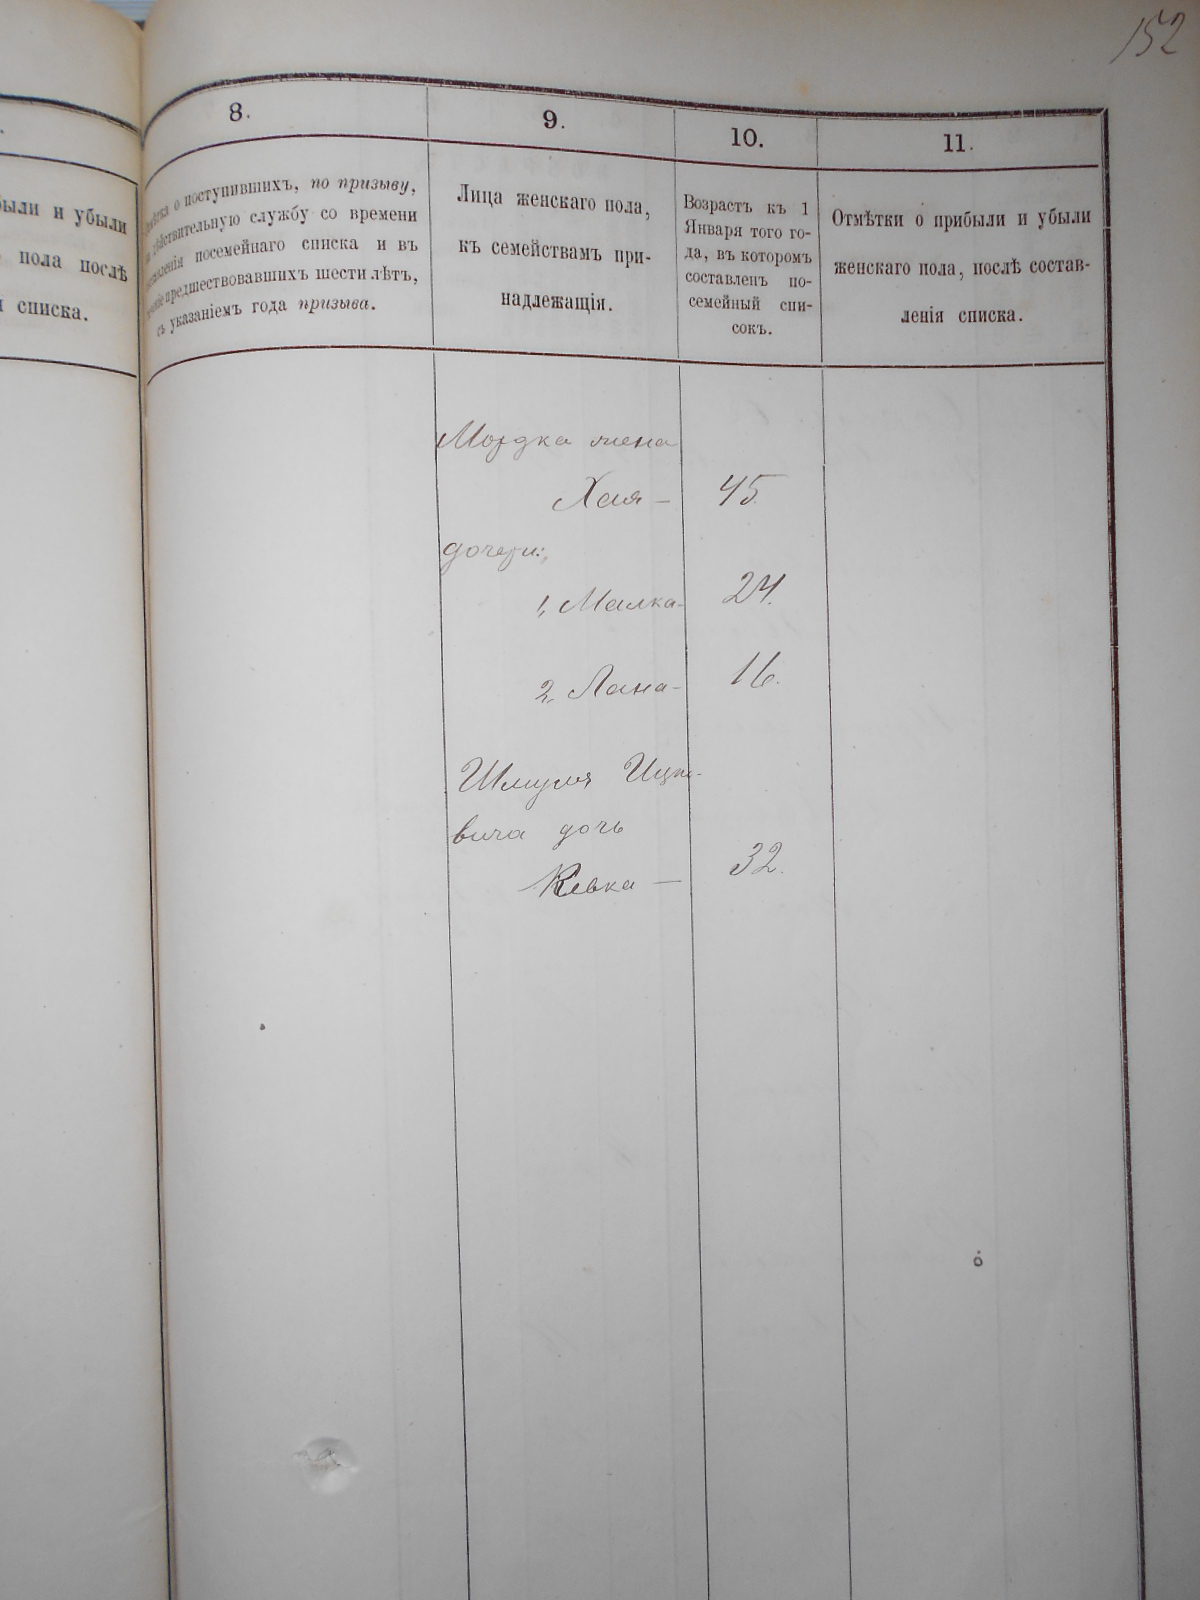 152
были и убыли
пола послѣ
списка.
8.
о поступившихъ, по призыву,
дѣйствительную службу со времени
посемейнаго списка и въ
предшествовавшихъ шести лѣтъ,
съ указаніемъ года призыва.
9.
Лица женскаго пола,
къ семействамъ при-
надлежащія.
10.
Возрастъ къ 1
Января того го-
да, въ которомъ
составленъ по-
семейный спи-
сокъ.
11.
Отмѣтки о прибыли и убыли
женскаго пола, послѣ состав-
ленія списка.
Мордка жена
Хая — 45
дочери:
1, Малка - 24.
2, Лана - 16.
Шмуля Ицко-
вича дочь
Ривка — 32.